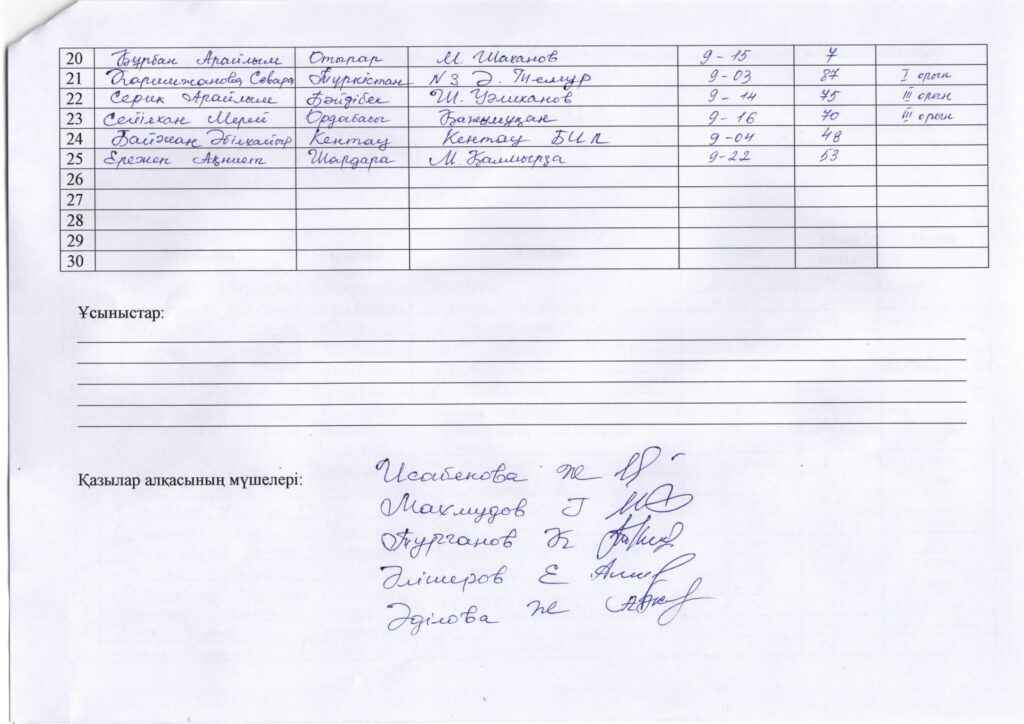 20 Құрбан Арайлым Отырар М. Шаханов 9-15 7
21 Каримжанова Севара Түркістан №3 Ә. Темур 9-03 87 I орын
22 Серик Арайлым Бәйдібек Ш. Уәлиханов 9-14 75 III орын
23 Сейілхан Мерей Ордабасы Қажымұқан 9-16 70 III орын
24 Байжан Әбілқайыр Кентау Кентау БИЛ 9-04 48
25 Ережеп Ақниет Шардара М Қалмырза 9-22 53
26
27
28
29
30
Ұсыныстар:
Қазылар алқасының мүшелері:
Исабекова Ж
Махмудов Г
Турганов К
Әлішеров Е
Әділова Ж